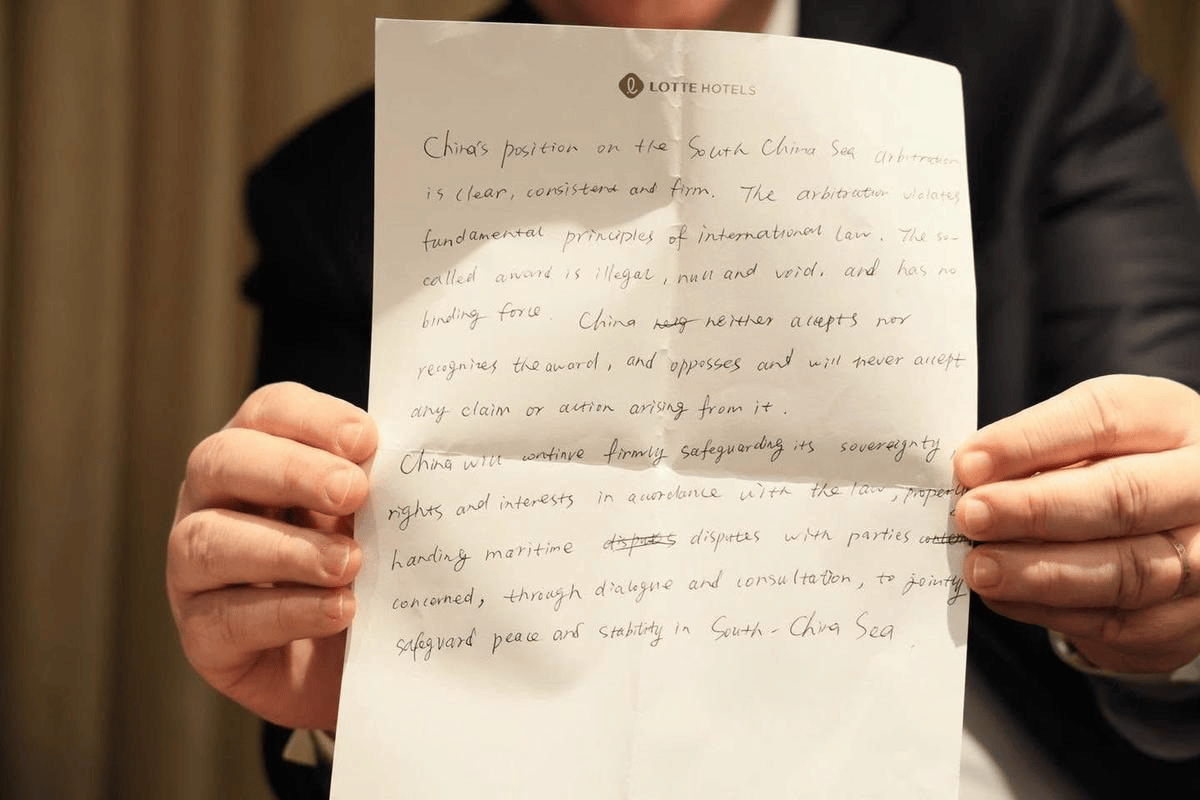 LOTTE HOTELS
China's position on the South China Sea arbitration
is clear, consistend and firm. The arbitration violates
fundamental principles of international law. The so-
called award is illegal, null and void. and has no
binding force. China neither accepts nor
recognizes the award, and oppsses and will never accept
any claim or action arising from it.
China will continue firmly safeguarding its sovereignty,
rights and interests in accordance with the law, properly
handing maritime disputes disputes with parties
concerned, through dialogue and consultation, to jointly
safeguard peace and stability in South-China Sea